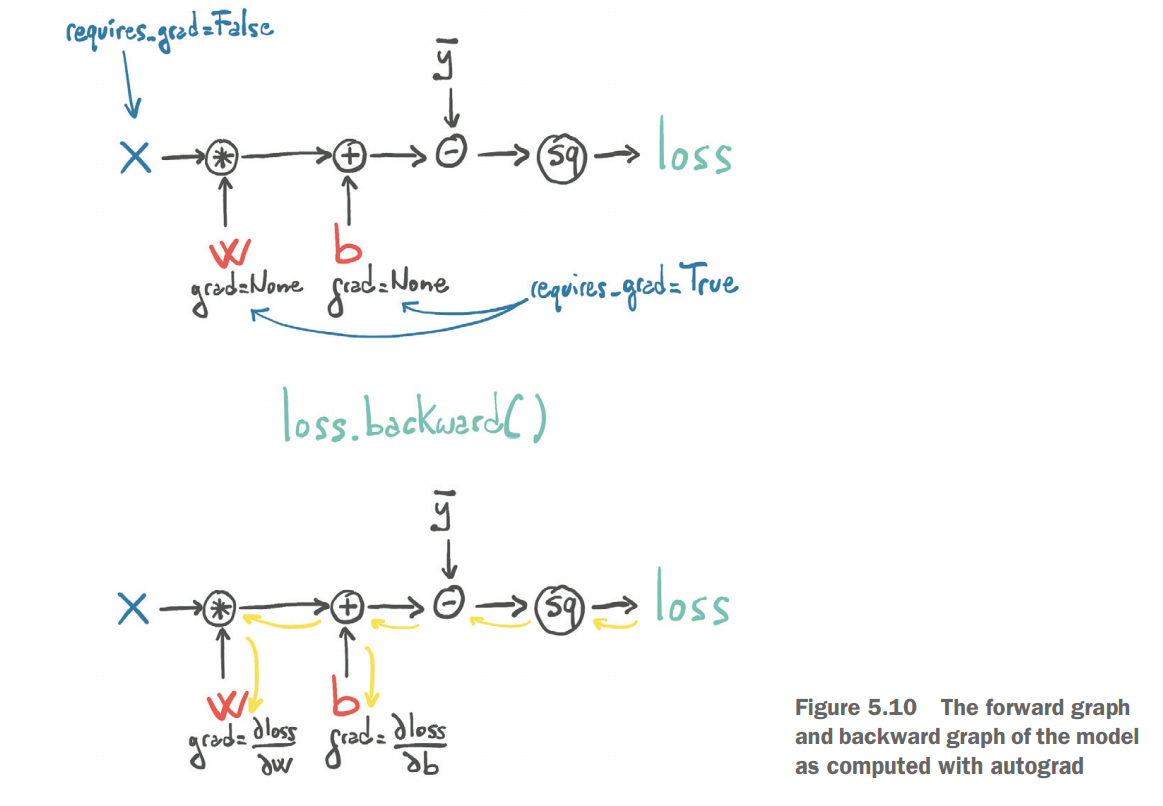 requires_grad=False
ȳ
X * + - sq loss
w b
grad=None grad=None requires_grad=True
loss.backward()
ȳ
X * + - sq loss
w b
grad= ∂loss/∂w grad= ∂loss/∂b
Figure 5.10 The forward graph
and backward graph of the model
as computed with autograd